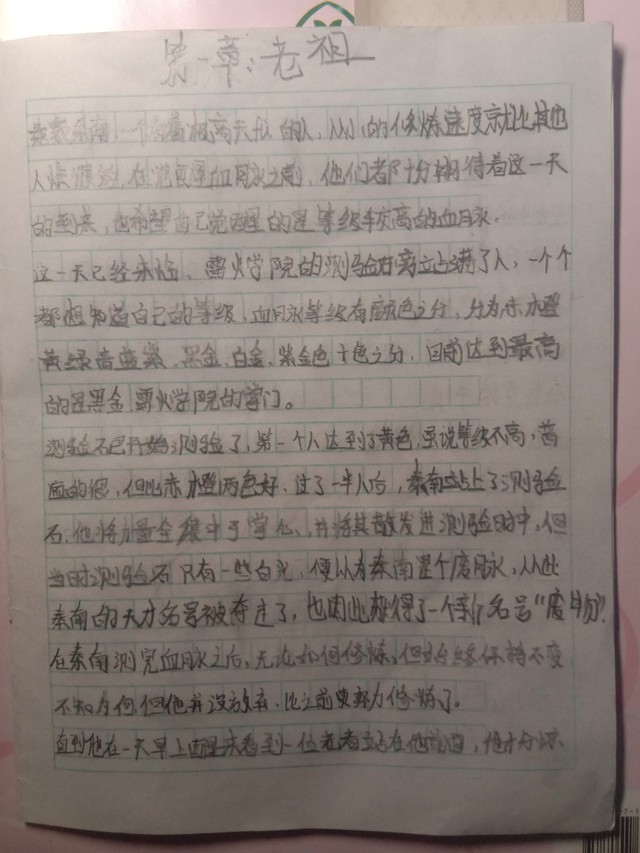 第一章:老祖
秦南,一个有着极高天租的人,从小的修炼速度就比其他
人快,在觉醒血脉之前,他们都十分期待着这一天
的到来,也希望自己觉醒的是等级较高的血脉.
这一天已经来临、雷火学院的测验石旁站满了人,一个个
都想知道自己的等级,血脉等级有颜色之分,分为赤橙
黄绿青蓝紫、黑金、白金、紫金色十色之分,目前达到最高
的是黑金 雷火学院的掌门。
测验石已开始测验了,第一个人达到了黄色,虽说等级不高,
但比赤橙两色好.过了一半人后,秦南站上了测验
石,他将力量全集中于掌心、并将其散发进测验石中,但
当时测验石只有一些白光,便以为秦南是个废脉,从此
秦南的天才名号被夺过了,也因此获得了一个新名号“废物”.
在秦南测完血脉之后,无论如何修炼,但始终保持不变
不知为何但他并没放弃.比之前更努力修炼了。
直到他在一天早上醒来看到一位老者站在他旁边,他十分惊